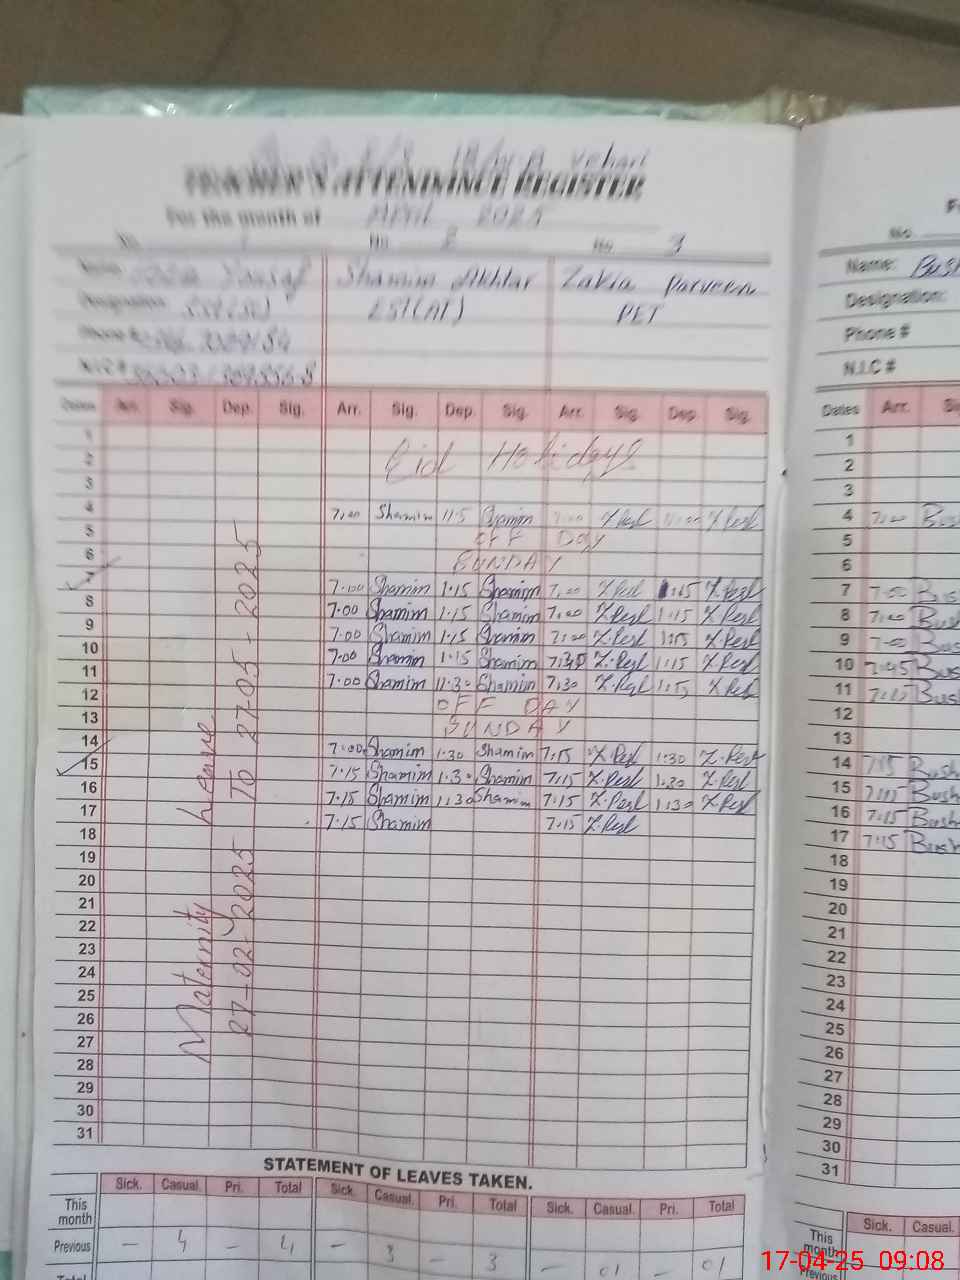 TEACHER'S ATTENDANCE REGISTER
For the month of APRIL 2025
No. 1 No. 2 No. 3
Name: Yousaf Shamim Akhtar Zakia Parveen
Designation: EST(AT) PET
Phone #
N.I.C #
Dates Arr. Sig. Dep. Sig. Arr. Sig. Dep. Sig. Arr. Sig. Dep. Sig.
1
2 Eid Holidays
3
4 7.00 Shamim 11.5 Shamim 7.00
5 OFF Day
6 SUNDAY
7 7.00 Shamim 1.15 Shamim 7.00 1.15
8 7.00 Shamim 1.15 Shamim 7.00 1.15
9 7.00 Shamim 1.15 Shamim 7.00 1.15
10 7.00 Shamim 1.15 Shamim 7.30 1.15
11 7.00 Shamim 11.30 Shamim 7.30 1.15
12 OFF DAY
13 SUNDAY
14 7.00 Shamim 1.30 Shamim 7.15 1.30
15 7.15 Shamim 1.30 Shamim 7.15 1.30
16 7.15 Shamim 1.30 Shamim 7.15 1.30
17 7.15 Shamim 7.15
18
19
20
21
22
23
24
25
26
27
28
29
30
31
Maternity Leave
27-02-2025 To 27-05-2025
STATEMENT OF LEAVES TAKEN.
Sick. Casual. Pri. Total Sick. Casual. Pri. Total Sick. Casual. Pri. Total
This month
Previous - 4 - 4 - 3 - 3 - 01 - 01
No.
Name:
Designation:
Phone #
N.I.C #
Dates Arr.
1
2
3
4 7.00
5
6
7 7.00
8 7.00
9 7.00
10
11
12
13
14 7.15
15 7.15
16 7.15
17 7.15
18
19
20
21
22
23
24
25
26
27
28
29
30
31
Sick. Casual.
This month
Previous
17-04-25 09:08